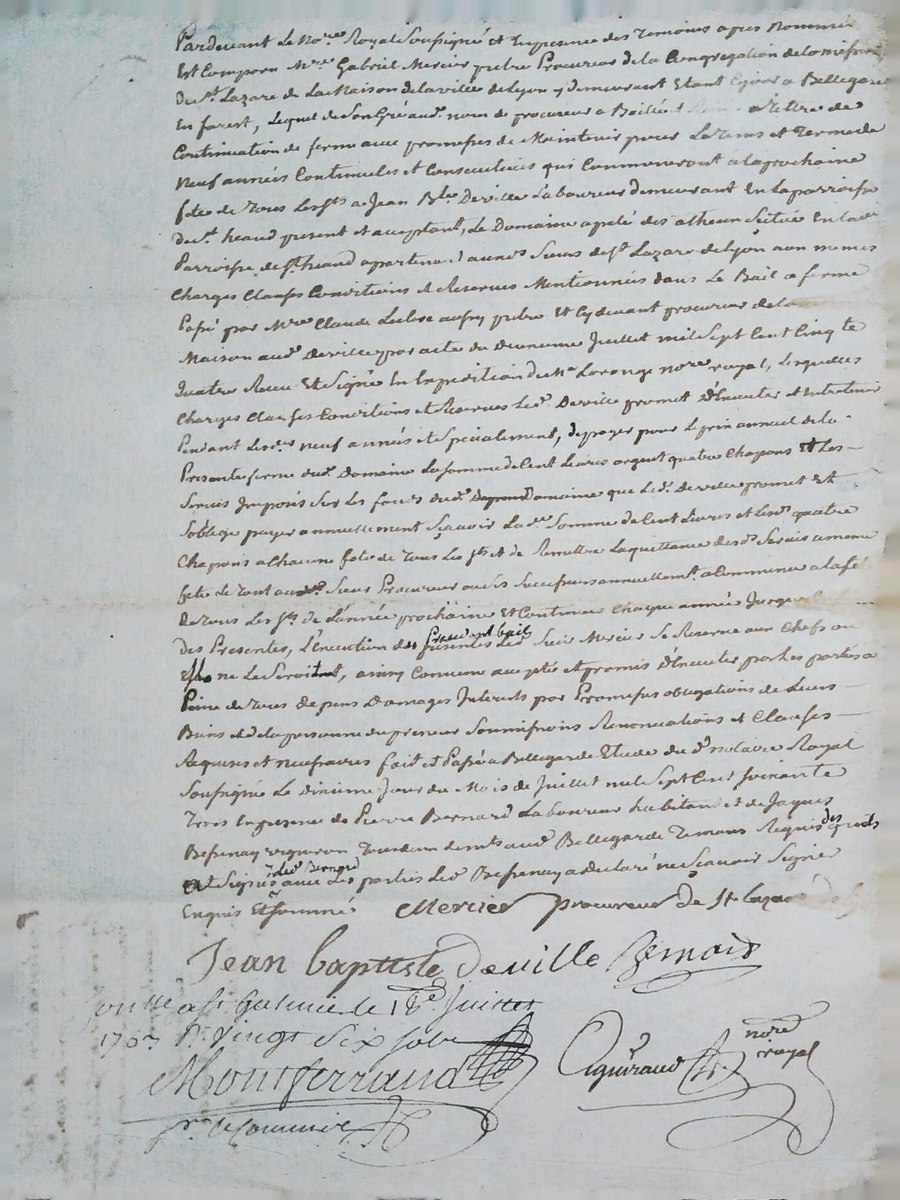 Pardevant Le No.re Royal Soussigné et En presence des Temoins apres Nommés
Est Comparu M.re Gabriel Mercier pretre Procureur de la Congregation de la mission
Du S.t Lazare de La Maison de la ville de Lyon y demeurant Etant Ce jour a Bellegarde
En forest, Lequel de Son Gré aud. nom de procureur a Baillé a titre de
Continuation de ferme avec promesses de Maintenir pour Le Tems et Terme de
Neuf années Continuelles et Consecutives qui Commenceront a la prochaine
fete de Tous Les S.ts a Jean B.te Deville Laboureur demeurant En La parroisse
De S.t heand present et acceptant, Le Domaine apelé des Situé En lad.
Parroisse de S.t heand apartenant Sieurs de S.t Lazare de Lyon aux memes
Charges Clauses Conditions et Reserves Mentionnées dans Le Bail a ferme
Passé par M.re Claude pretre Et Cy devant procureur de la
Maison aud. Deville par acte du Juillet mil Sept Cent Cinq.te
Quatre Recu Et Signé En Expedition du M.e Loronge no.re royal, Lesquelles
Charges Clauses Conditions et Reserves Led. Deville promet D'Executer et Entretenir
Pendant Lesd. neuf années et Specialement, de payer pour Le prix annuel de la
Presente ferme dud. Domaine La somme de Cent Livres argent quatre Chapons Et Les
Servis Imposés Sur Les fonds dud. Domaine que Led. Deville promet Et
S'oblige payer annuellement Sçavoir Lad. Somme de Cent Livres et Les quatre
Chapons a Chacune fete de Tous Les S.ts et de Remettre La quittance desd. Servis a meme
fete Le Tout aud. Sieur Procureur ou Ses Successeurs annuellem.t a Commencer a la fete
De Tous Les S.ts de L'année prochaine Et Continuer Chaque année
des Presentes, L'Execution du present bail Led. Sieur Mercier Se Reserve aux Chefs ou
Elle ne Le Seroit, ainsy Convenu accepté et promis D'Executer par Les parties a
Peine de Tous Depens Domages Interets par Promesses obligations de Leurs
Biens et de la personne du preneur Soumissions Renonciations et Clauses
Requises et necessaires fait et Passé a Bellegarde Etude du d. notaire Royal
Soussigné Le dixieme Jour du Mois de Juillet mil Sept Cent Soixante
Trois En presence de Pierre Bernard Laboureur habitant et de Jaques
Bessenay vigneron Tous deux dem.ts aud. Bellegarde Temoins Requis des quels
a Signé led. Bernard avec Les parties Led. Bessenay a declaré ne Sçavoir Signer
Enquis Et Sommé Mercier procureur de St lazare de Lyon
Jean baptiste deville Bernard
a St Galmier le 18e Juillet
1763 R. vingt Six sols
Montferrand Aguiraud
nore
royal